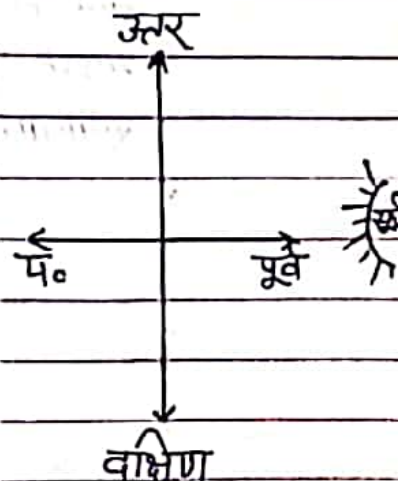 उत्तर
प० पूर्व
दक्षिण